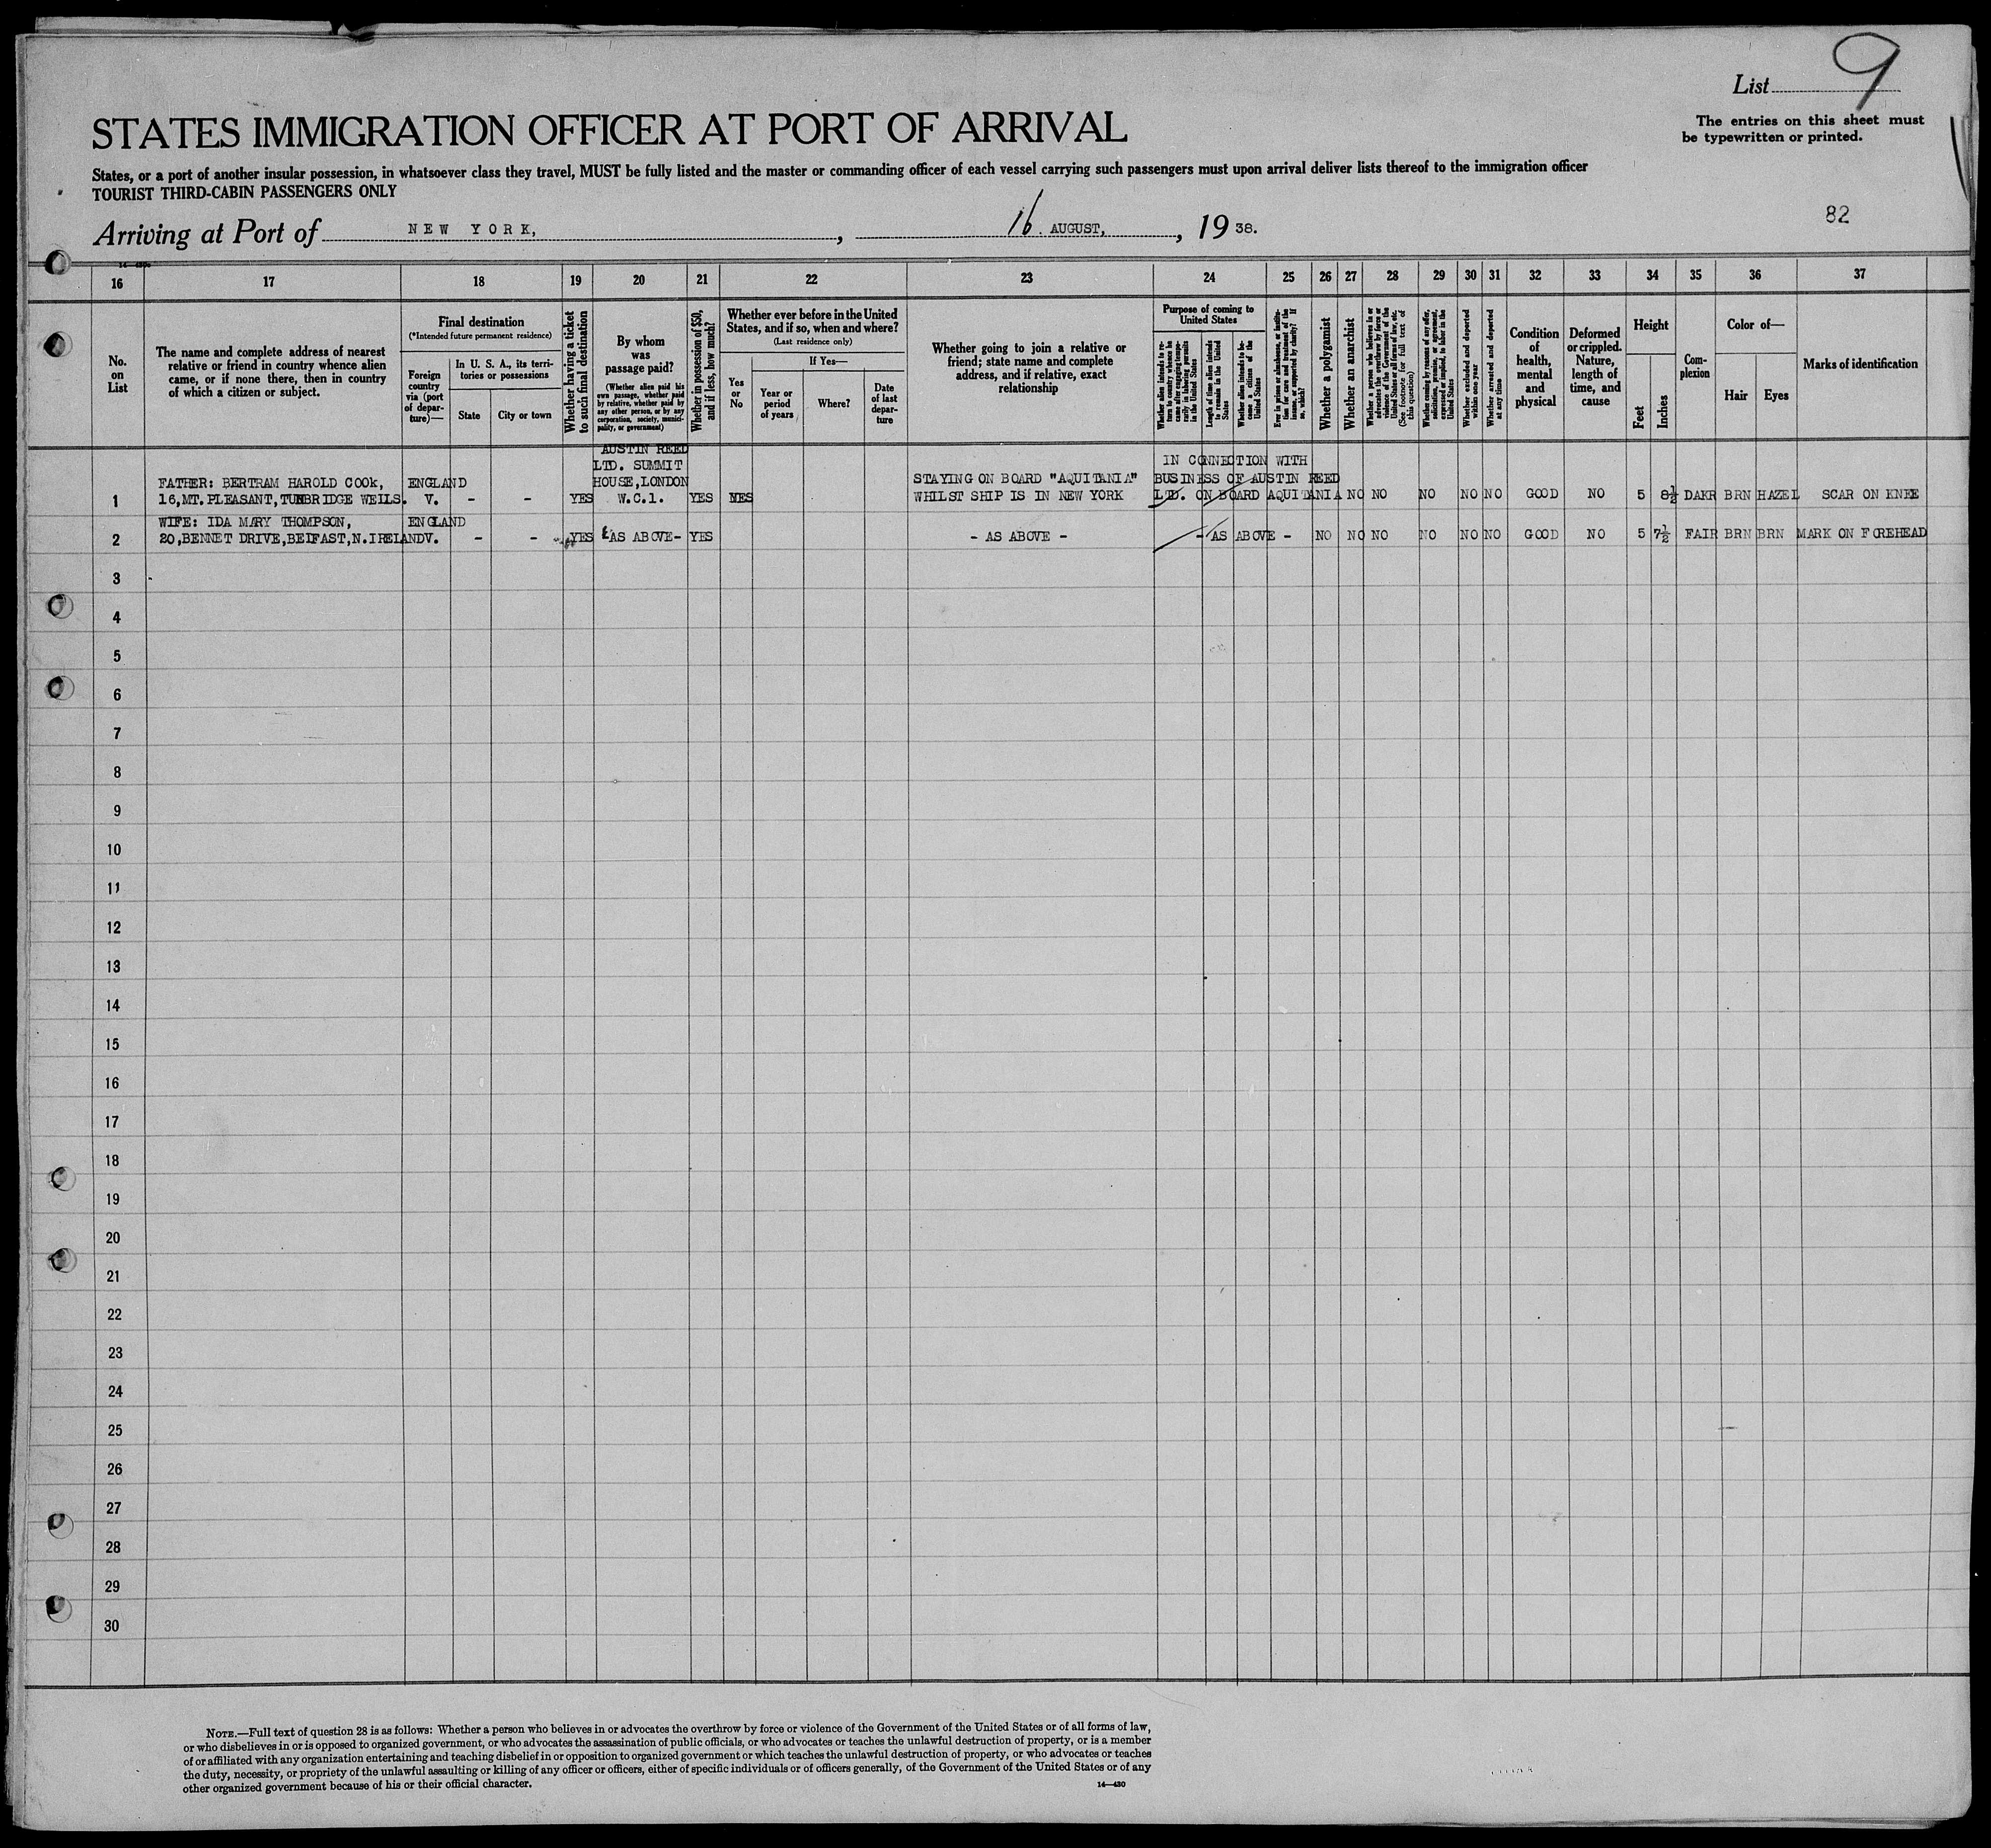 List 9
The entries on this sheet must
be typewritten or printed.
STATES IMMIGRATION OFFICER AT PORT OF ARRIVAL
States, or a port of another insular possession, in whatsoever class they travel, MUST be fully listed and the master or commanding officer of each vessel carrying such passengers must upon arrival deliver lists thereof to the immigration officer
TOURIST THIRD-CABIN PASSENGERS ONLY
82
Arriving at Port of NEW YORK, , 16 AUGUST, , 1938.
16 17 18 19 20 21 22 23 24 25 26 27 28 29 30 31 32 33 34 35 36 37
No.
on
List
The name and complete address of nearest
relative or friend in country whence alien
came, or if none there, then in country
of which a citizen or subject.
Final destination
(*Intended future permanent residence)
Foreign
country
via (port
of depar-
ture)—
In U. S. A., its terri-
tories or possessions
State
City or town
Whether having a ticket
to such final destination
By whom
was
passage paid?
(Whether alien paid his
own passage, whether paid
by relative, whether paid by
any other person, or by any
corporation, society, munici-
pality, or government)
Whether in possession of $50,
and if less, how much?
Whether ever before in the United
States, and if so, when and where?
(Last residence only)
Yes
or
No
If Yes—
Year or
period
of years
Where?
Date
of last
depar-
ture
Whether going to join a relative or
friend; state name and complete
address, and if relative, exact
relationship
Purpose of coming to
United States
Whether alien intends to re-
turn to country whence he
came after engaging tempo-
rarily in laboring pursuits
in the United States
Length of time alien intends
to remain in the United
States
Whether alien intends to be-
come a citizen of the
United States
Ever in prison or almshouse, or institu-
tion for care and treatment of the
insane, or supported by charity? If
so, which?
Whether a polygamist
Whether an anarchist
Whether a person who believes in or
advocates the overthrow by force or
violence of the Government of the
United States or all forms of law, etc.
(See footnote for full text of
this question)
Whether coming by reasons of any offer,
solicitation, promise, or agreement,
expressed or implied, to labor in the
United States
Whether excluded and deported
within one year
Whether arrested and deported
at any time
Condition
of
health,
mental
and
physical
Deformed
or crippled.
Nature,
length of
time, and
cause
Height
Feet
Inches
Com-
plexion
Color of—
Hair
Eyes
Marks of identification
AUSTIN REED
LTD. SUMMIT IN CONNECTION WITH
FATHER: BERTRAM HAROLD COOK, ENGLAND HOUSE, LONDON STAYING ON BOARD "AQUITANIA" BUSINESS OF AUSTIN REED
1 16, MT. PLEASANT, TUNBRIDGE WELLS. V. - - YES W.C.1. YES WHILST SHIP IS IN NEW YORK LTD. ON BOARD AQUITANIA NO NO NO NO NO GOOD NO 5 8½ DAKR BRN HAZEL SCAR ON KNEE
WIFE: IDA MARY THOMPSON, ENGLAND
2 20, BENNET DRIVE, BELFAST, N.IRELAND V. - - YES -AS ABOVE- YES - AS ABOVE - - AS ABOVE - NO NO NO NO NO NO GOOD NO 5 7½ FAIR BRN BRN MARK ON FOREHEAD
3
4
5
6
7
8
9
10
11
12
13
14
15
16
17
18
19
20
21
22
23
24
25
26
27
28
29
30
NOTE.—Full text of question 28 is as follows: Whether a person who believes in or advocates the overthrow by force or violence of the Government of the United States or of all forms of law,
or who disbelieves in or is opposed to organized government, or who advocates the assassination of public officials, or who advocates or teaches the unlawful destruction of property, or is a member
of or affiliated with any organization entertaining and teaching disbelief in or opposition to organized government or which teaches the unlawful destruction of property, or who advocates or teaches
the duty, necessity, or propriety of the unlawful assaulting or killing of any officer or officers, either of specific individuals or of officers generally, of the Government of the United States or of any
other organized government because of his or their official character.
14—430